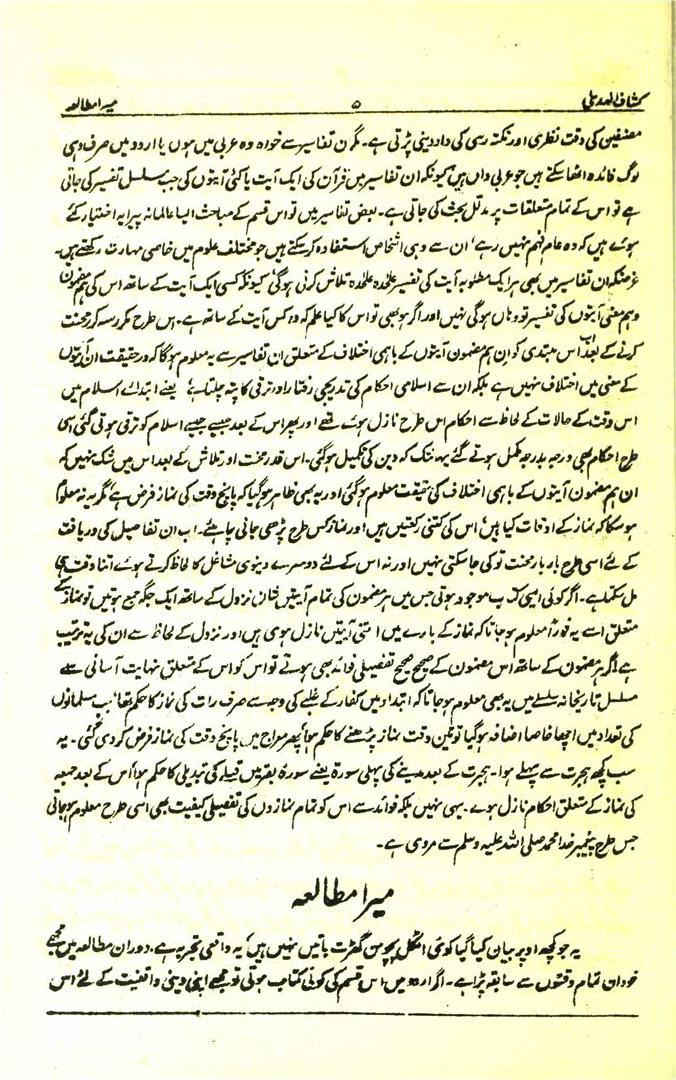 کشاف الہدیٰ ۵ میرا مطالعہ
مصنفین کی دقت نظری اور نکتہ رسی کی داد دینی پڑتی ہے۔ مگر ان تفاسیر سے خواہ وہ عربی میں ہوں یا اردو میں صرف وہی
لوگ فائدہ اٹھا سکتے ہیں جو عربی داں ہیں کیونکہ ان تفاسیر میں قرآن کی ایک آیت یا کئی آیتوں کی جب مسلسل تفسیر کی جاتی
ہے تو اس کے تمام متعلقات پر مدلل بحث کی جاتی ہے۔ بعض تفاسیر میں تو اس قسم کے مباحث ایسا عالمانہ پیرایہ اختیار کئے
ہوئے ہیں کہ وہ عام فہم نہیں رہے، ان سے وہی اشخاص استفادہ کر سکتے ہیں جو مختلف علوم میں خاصی مہارت رکھتے ہیں۔
غرضکہ ان تفاسیر میں بھی ہر ایک مطلوبہ آیت کی تفسیر علیٰحدہ علیٰحدہ تلاش کرنی ہوگی، کیونکہ کسی ایک آیت کے ساتھ اس کی ہم مضمون
وہم معنی آیتوں کی تفسیر تو وہاں ہوگی نہیں اور اگر ہو بھی تو اس کا کیا علم کہ وہ کس آیت کے ساتھ ہے۔ اس طرح مکرر سہ کرر محنت
کرنے کے بعد اب اس مبتدی کو ان ہم مضمون آیتوں کے باہمی اختلاف کے متعلق ان تفاسیر سے یہ معلوم ہوگا کہ درحقیقت ان آیتوں
کے معنی میں اختلاف نہیں ہے بلکہ ان سے اسلامی احکام کی تدریجی رفتار اور ترقی کا پتہ چلتا ہے، یعنے ابتدائے اسلام میں
اس وقت کے حالات کے لحاظ سے احکام اس طرح نازل ہوئے تھے اور پھر اس کے بعد جیسے جیسے اسلام کو ترقی ہوتی گئی اسی
طرح احکام بھی درجہ بدرجہ مکمل ہوتے گئے یہاں تک کہ دین کی تکمیل ہوگئی۔ اس قدر محنت اور تلاش کے بعد اس میں شک نہیں کہ
ان ہم مضمون آیتوں کے باہمی اختلاف کی حقیقت معلوم ہوگئی اور یہ بھی ظاہر ہوگیا کہ پانچ وقت کی نماز فرض ہے، مگر یہ نہ معلوم
ہو سکا کہ نماز کے اوقات کیا ہیں، اس کی کتنی رکعتیں ہیں، اور نماز کس طرح پڑھی جانی چاہئے۔ اب ان تفاصیل کی دریافت
کے لئے اسی طرح بار بار محنت تو کی جا سکتی نہیں اور نہ اس کے لئے دوسرے دنیوی مشاغل کا لحاظ کرتے ہوئے اتنا وقت ہی
مل سکتا ہے۔ اگر کوئی ایسی کتاب موجود ہوتی جس میں ہر مضمون کی تمام آیتیں شان نزول کے ساتھ ایک جگہ جمع ہوتیں تو نماز کے
متعلق اسے یہ فوراً معلوم ہو جاتا کہ نماز کے بارے میں اتنی آیتیں نازل ہوی ہیں اور نزول کے لحاظ سے ان کی یہ ترتیب
ہے اگر ہر مضمون کے ساتھ اس مضمون کے صحیح صحیح تفصیلی فوائد بھی ہوتے تو اس کو اس کے متعلق نہایت آسانی سے
مسلسل تاریخانہ سلسلے میں یہ بھی معلوم ہو جاتا کہ ابتداء میں کفار کے غلبے کی وجہ سے صرف رات کی نماز کا حکم تھا، جب مسلمانوں
کی تعداد میں اچھا خاصا اضافہ ہوگیا تو تین وقت نماز پڑھنے کا حکم ہوا، پھر معراج میں پانچ وقت کی نماز فرض کر دی گئی۔ یہ
سب کچھ ہجرت سے پہلے ہوا۔ ہجرت کے بعد مدینے کی پہلی سورۃ یعنے سورۂ بقر میں قبلے کی تبدیلی کا حکم ہوا، اس کے بعد جمعہ
کی نماز کے متعلق احکام نازل ہوے۔ یہی نہیں بلکہ فوائد سے اس کو تمام نمازوں کی تفصیلی کیفیت بھی اسی طرح معلوم ہو جاتی
جس طرح پیغمبر خدا محمد صلی اللہ علیہ وسلم سے مروی ہے۔
میرا مطالعہ
یہ جو کچھ اوپر بیان کیا گیا کوئی اٹکل پچو من گھڑت باتیں نہیں ہیں، یہ واقعی تجربہ ہے، دوران مطالعہ میں مجھے
خود ان تمام دقتوں سے سابقہ پڑا ہے۔ اگر اردو میں اس قسم کی کوئی کتاب ہوتی تو مجھے اپنی دینی واقفیت کے لئے اس